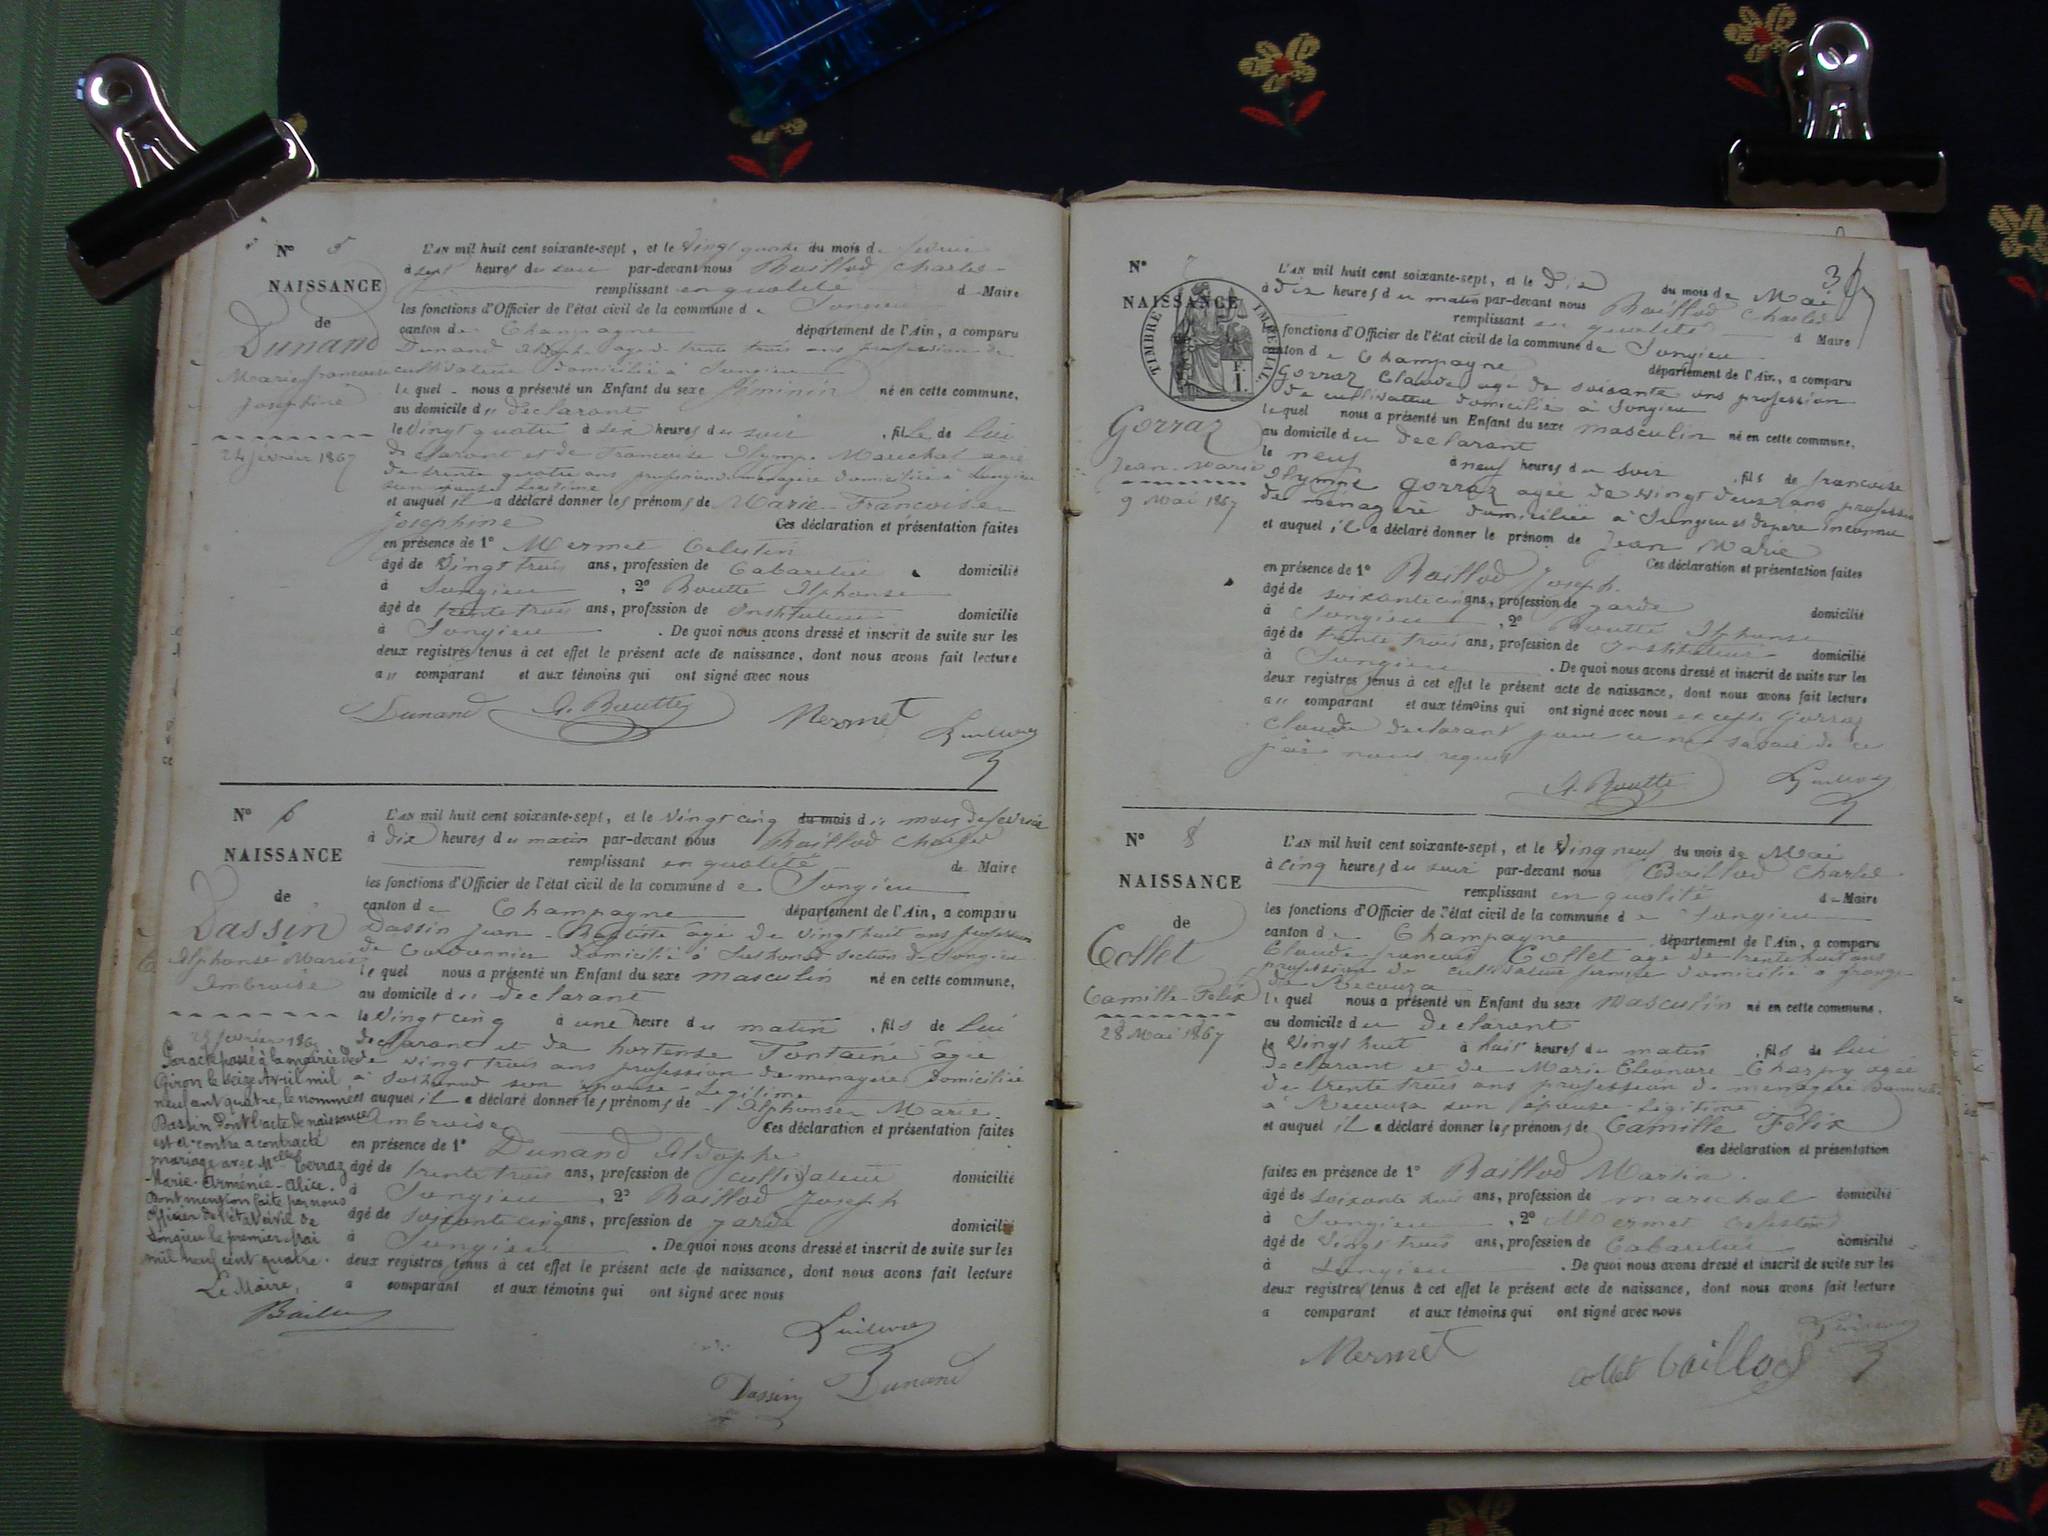 N° 5
NAISSANCE
de
Dunand
Marie françoise
Joséphine
24 février 1867
L'AN mil huit cent soixante-sept, et le Vingt quatre du mois de février
à sept heures du soir par-devant nous Baillod Charles
remplissant en qualité d Maire
les fonctions d'Officier de l'état civil de la commune de Songieu
canton de Champagne département de l'Ain, a comparu
Dunand Adolphe agé de trente trois ans profession de
cultivateur domicilié à Songieu
lequel nous a présenté un Enfant du sexe féminin né en cette commune,
au domicile du déclarant
le Vingt quatre à six heures du soir, fille de lui
déclarant et de Francoise Olympe Maréchal agée
de trente quatre ans profession de ménagère domiciliée à Songieu
son épouse légitime
et auquel il a déclaré donner les prénoms de Marie Françoise
Joséphine Ces déclaration et présentation faites
en présence de 1° Mermet Celestin
âgé de Vingt trois ans, profession de Cabaretier domicilié
à Songieu, 2° Boutte Alphonse
âgé de trente trois ans, profession de Instituteur domicilié
à Songieu. De quoi nous avons dressé et inscrit de suite sur les
deux registres tenus à cet effet le présent acte de naissance, dont nous avons fait lecture
au comparant et aux témoins qui ont signé avec nous
Dunand A. Boutte Mermet
N° 6
NAISSANCE
de
Dassin
Alphonse Marie
Ambroise
25 février 1867
Par acte passé à la mairie de
Giron le seize Avril mil
neuf cent quatre, le nommé
Dassin dont l'acte de naissance
est ci-contre a contracté
mariage avec Melle
Marie-Arménie-Alice.
Dont mention faite par nous
officier de l'état civil de
Songieu le premier Mai
mil neuf cent quatre.
Le Maire,
L'AN mil huit cent soixante-sept, et le Vingt cinq du mois d mois de février
à dix heures du matin par-devant nous Baillod Charles
remplissant en qualité de Maire
les fonctions d'Officier de l'état civil de la commune de Songieu
canton de Champagne département de l'Ain, a comparu
Dassin Jean-Baptiste agé de vingt huit ans profession
de Cordonnier domicilié à Sothonod section de Songieu
lequel nous a présenté un Enfant du sexe masculin né en cette commune,
au domicile du déclarant
le Vingt cinq à une heure du matin, fils de lui
déclarant et de hortense Fontaine agée
de vingt trois ans profession de ménagère domiciliée
à Sothonod son épouse Légitime
et auquel il a déclaré donner les prénoms de Alphonse Marie
Ambroise Ces déclaration et présentation faites
en présence de 1° Dunand Adolphe
âgé de trente trois ans, profession de cultivateur domicilié
à Songieu, 2° Baillod Joseph
âgé de soixante cinq ans, profession de garde domicilié
à Songieu. De quoi nous avons dressé et inscrit de suite sur les
deux registres tenus à cet effet le présent acte de naissance, dont nous avons fait lecture
a comparant et aux témoins qui ont signé avec nous
Dassin Dunand
N° 7
NAISSANCE
TIMBRE IMPÉRIAL
1 F.
Gorraz
Jean-Marie
9 Mai 1867
L'AN mil huit cent soixante-sept, et le Dix du mois de Mai
à Dix heures du matin par-devant nous Baillod Charles
remplissant en qualité d Maire
fonctions d'Officier de l'état civil de la commune de Songieu
canton de Champagne département de l'Ain, a comparu
Gorraz Claude agé de soixante ans profession
de cultivateur domicilié à Songieu
lequel nous a présenté un Enfant du sexe masculin né en cette commune,
au domicile du déclarant
le neuf à neuf heures du soir, fils de françoise
Olympe Gorraz agée de vingt deux ans profession
de ménagère domiciliée à Songieu et de père inconnu
et auquel il a déclaré donner le prénom de Jean Marie
Ces déclaration et présentation faites
en présence de 1° Baillod Joseph
âgé de soixante cinq ans, profession de garde domicilié
à Songieu, 2° Boutte Alphonse
âgé de trente trois ans, profession de Instituteur domicilié
à Songieu. De quoi nous avons dressé et inscrit de suite sur les
deux registres tenus à cet effet le présent acte de naissance, dont nous avons fait lecture
au comparant et aux témoins qui ont signé avec nous excepté Gorraz
Claude déclarant pour ne savoir de ce
nous requis
A. Boutte
N° 8
NAISSANCE
de
Collet
Camille-Félix
28 Mai 1867
L'AN mil huit cent soixante-sept, et le Vingt neuf du mois de Mai
à cinq heures du soir par-devant nous Baillod Charles
remplissant en qualité d Maire
les fonctions d'Officier de l'état civil de la commune de Songieu
canton de Champagne département de l'Ain, a comparu
Claude françois Collet agé de trente huit ans
profession de cultivateur fermier domicilié à grange
de Recouza
lequel nous a présenté un Enfant du sexe masculin né en cette commune,
au domicile du déclarant
le Vingt huit à huit heures du matin, fils de lui
déclarant et de Marie Eléonore Charpy agée
de trente trois ans profession de ménagère domiciliée
à Recouza son épouse légitime
et auquel il a déclaré donner les prénoms de Camille Félix
Ces déclaration et présentation
faites en présence de 1° Baillod Martin
âgé de soixante huit ans, profession de maréchal domicilié
à Songieu, 2° Mermet Celestin
âgé de Vingt trois ans, profession de Cabaretier domicilié
à Songieu. De quoi nous avons dressé et inscrit de suite sur les
deux registres tenus à cet effet le présent acte de naissance, dont nous avons fait lecture
a comparant et aux témoins qui ont signé avec nous
Mermet Collet Baillod